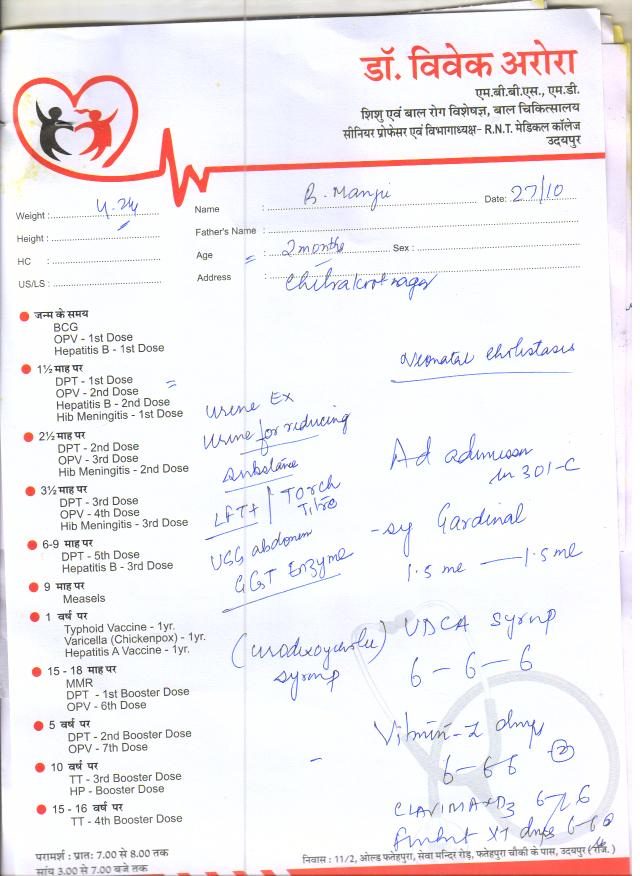 डॉ. विवेक अरोरा
एम.बी.बी.एस., एम.डी.
शिशु एवं बाल रोग विशेषज्ञ, बाल चिकित्सालय
सीनियर प्रोफेसर एवं विभागाध्यक्ष- R.N.T. मेडिकल कॉलेज
उदयपुर
Weight : Name : B. Manju Date: 27/10
Height : Father's Name :
HC : Age : 2 months Sex :
US/LS : Address : Chitrakoot nagar
जन्म के समय
BCG
OPV - 1st Dose
Hepatitis B - 1st Dose
1½ माह पर
DPT - 1st Dose
OPV - 2nd Dose
Hepatitis B - 2nd Dose
Hib Meningitis - 1st Dose
2½ माह पर
DPT - 2nd Dose
OPV - 3rd Dose
Hib Meningitis - 2nd Dose
3½ माह पर
DPT - 3rd Dose
OPV - 4th Dose
Hib Meningitis - 3rd Dose
6-9 माह पर
DPT - 5th Dose
Hepatitis B - 3rd Dose
9 माह पर
Measels
1 वर्ष पर
Typhoid Vaccine - 1yr.
Varicella (Chickenpox) - 1yr.
Hepatitis A Vaccine - 1yr.
15 - 18 माह पर
MMR
DPT - 1st Booster Dose
OPV - 6th Dose
5 वर्ष पर
DPT - 2nd Booster Dose
OPV - 7th Dose
10 वर्ष पर
TT - 3rd Booster Dose
HP - Booster Dose
15 - 16 वर्ष पर
TT - 4th Booster Dose
Urine Ex
Urine for reducing
substance
LFT+ | Torch
Titre
USG abdomen
GGT Enzyme
Neonatal Cholistasis
Ad admission
in 301-C
- sy Gardinal
1.5 ml — 1.5 ml
UDCA Syrup
syrup
6 - 6 - 6
drops
6 - 6 6
2
6
XT drops
परामर्श : प्रातः 7.00 से 8.00 तक
सांय 3.00 से 7.00 बजे तक
निवास : 11/2, ओल्ड फतेहपुरा, सेवा मन्दिर रोड़, फतेहपुरा चौकी के पास, उदयपुर (राज.)